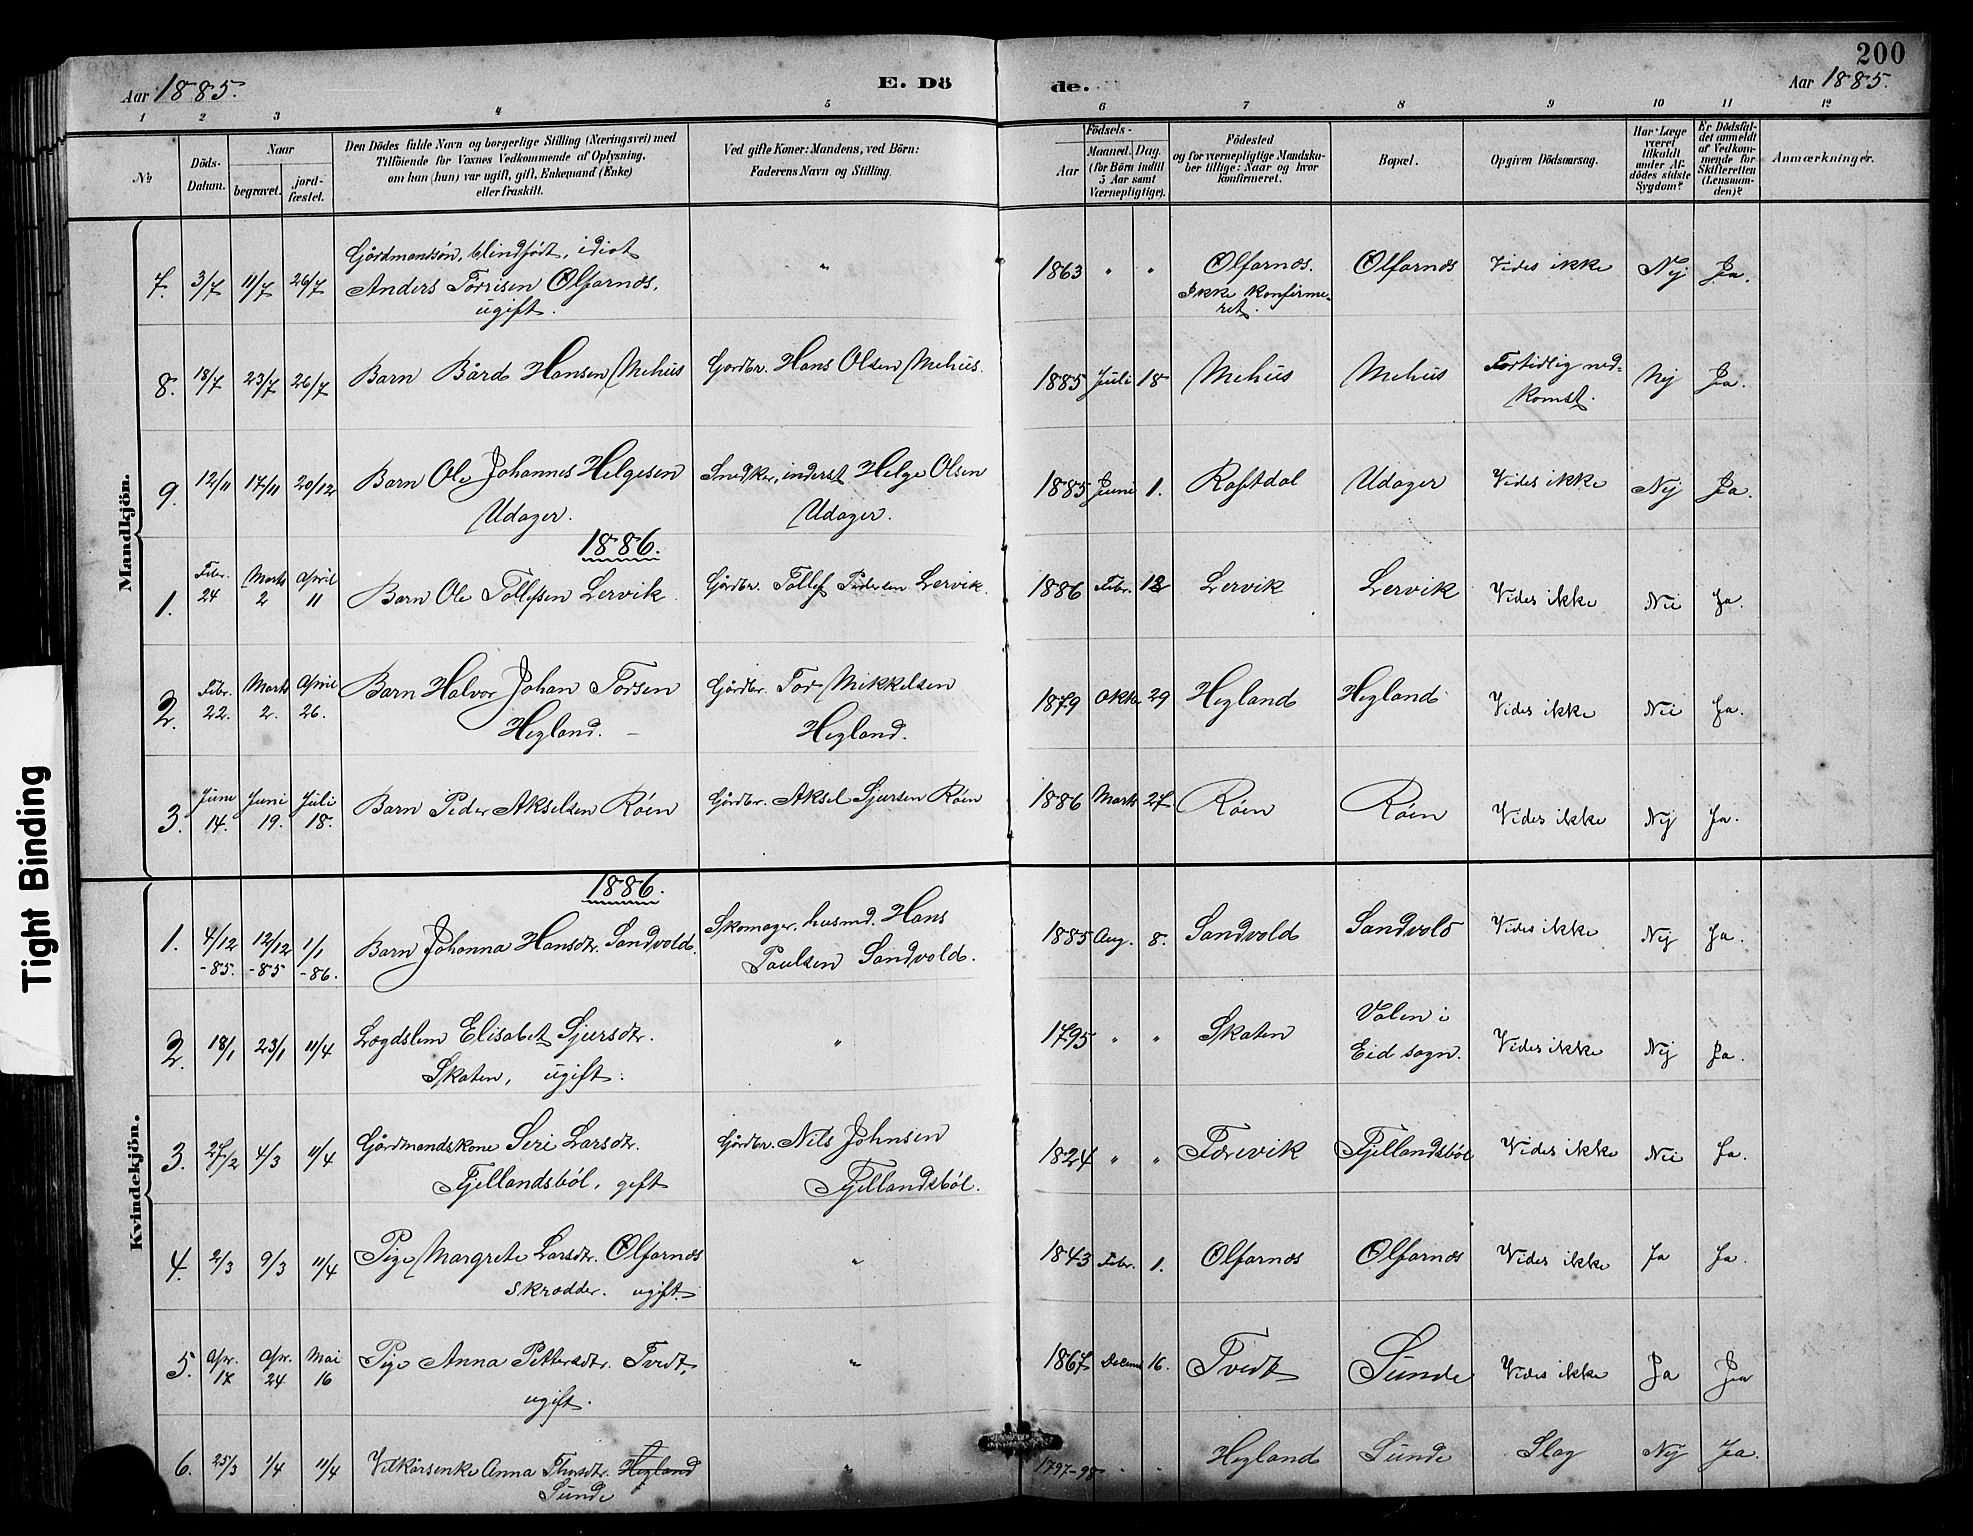 200
Aar 1885. E. Dö de. Aar 1885.
1 2 3 4 5 6 7 8 9 10 11 12
No
Döds-Datum.
Naar
begravet.
jord-fæstet.
Den Dödes fulde Navn og borgerlige Stilling (Næringsvei) med
Tilföiende for Voxnes Vedkommende af Oplysning,
om han (hun) var ugift, gift, Enkemand (Enke)
eller fraskilt.
Ved gifte Koner: Mandens, ved Börn:
Faderens Navn og Stilling.
Födsels-
Aar
Maaned. Dag.
(for Börn indtil
5 Aar samt
Værnepligtige).
Födested
og for værnepligtige Mandska-
ber tillige: Naar og hvor
konfirmeret.
Bopæl.
Opgiven Dödsaarsag.
Har Læge
været
tilkaldt
under Af-
dödes sidste
Sygdom?
Er Dödsfal-
det anmeldt
af Vedkom-
mende for
Skifteretten
(Lensman-
den)?
Anmærkninger.
Mandkjön.
7. 3/7 11/7 26/7 Gårdmandsön, blindfödt, idiot
Anders Torrisen Ølfarnes,
ugift. " 1863 " " Ølfarnes.
Ikke konfirme-
ret. Ølfarnes Vides ikke Nej Ja.
8. 18/7 23/7 26/7 Barn Bård Hansen Mehus Gardbr. Hans Olsen Mehus. 1885 Juli 18 Mehus Mehus Fortidlig ned-
komst. Nej Ja.
9. 12/11 17/11 20/12 Barn Ole Johannes Helgesen
Udager. Snedker, inderst Helge Olsen
Udager. 1885 Juni 1. Raftdal Udager Vides ikke Nej Ja.
1886.
1. Febr. 24 Marts 2 April 11 Barn Ole Tollefsen Lervik. Gårdbr. Tollef Pedersen Lervik. 1886 Febr. 12 Lervik Lervik Vides ikke Nei Ja.
2. Febr. 22. Marts 2. April 26. Barn Halvor Johan Torsen
Hegland. Gårdbr. Tor Mikkelsen
Hegland. 1879 Oktbr 29 Hegland Hegland Vides ikke Nei Ja.
3. Juni 14. Juni 19. Juli 18. Barn Peder Akselsen Röen Gårdbr. Aksel Sjursen Röen 1886 Marts 27 Röen Röen Vides ikke Nej Ja.
Kvindekjön.
1886.
1. 4/12 -85. 12/12 -85 1/1 -86. Barn Johanna Hansdtr. Sandvold. Skomager, husmd. Hans
Paulsen Sandvold. 1885 Aug. 8. Sandvold Sandvold Vides ikke Nej Ja.
2. 18/1 23/1 11/4 Lægdslem Elisabet Sjursdtr.
Skaten, ugift. " 1795 " " Skaten Valen i
Eid sogn. Vides ikke Nej Ja.
3. 27/2 4/3 11/4 Gårdmandskone Seri Larsdtr.
Fjellandsböl, gift Gårdbr. Nils Johnsen
Fjellandsböl. 1824 " " Torevik Fjellandsböl Vides ikke Nei Ja.
4. 2/3 9/3 11/4 Pige Margrete Larsdtr. Ølfarnes
Skrædder. ugift. " 1843 Febr. 1. Ølfarnes Ølfarnes Vides ikke Ja Ja.
5. Apr. 17 Apr. 24 Mai 16 Pige Anna Pettersdtr. Tvedt,
ugift. " 1867 Decem 16. Tvedt Sunde Vides ikke Ja Ja
6. 25/3 1/4 11/4 Vilkårsenke Anna Thorsdtr. Hegland
Sunde " 1797-98 " " Hegland Sunde Slag Nej Ja.
Tight Binding